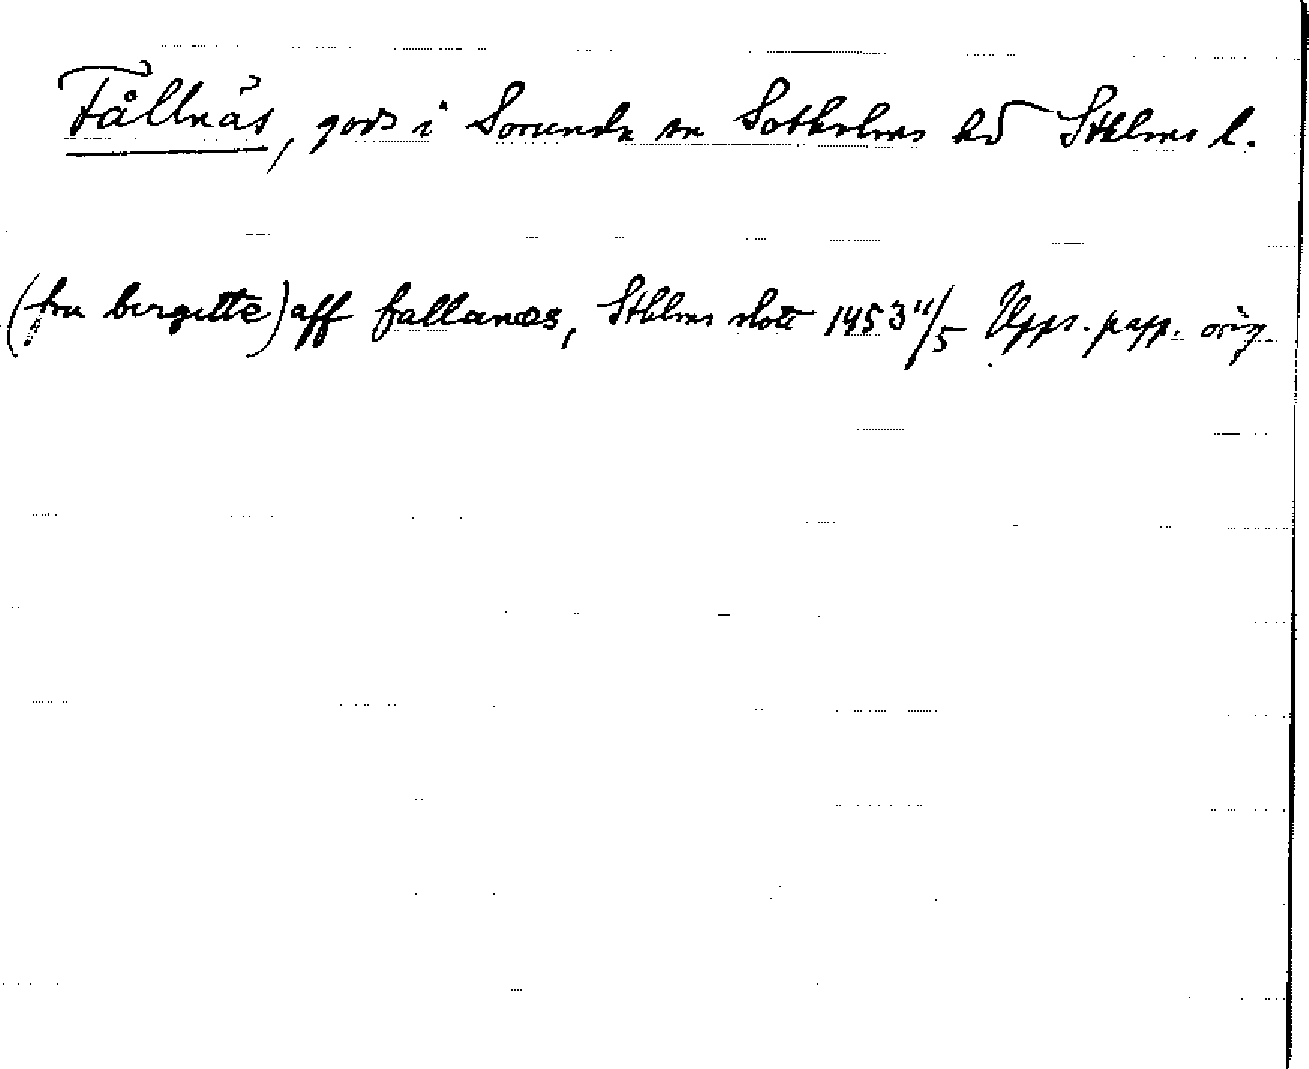 Fållnäs, gods i Sorunda sn Sotholms hd Sthlms l.
(fru birgitte) aff fallanæs, Sthlms slott 1453 11/5 Upps. papp. orig